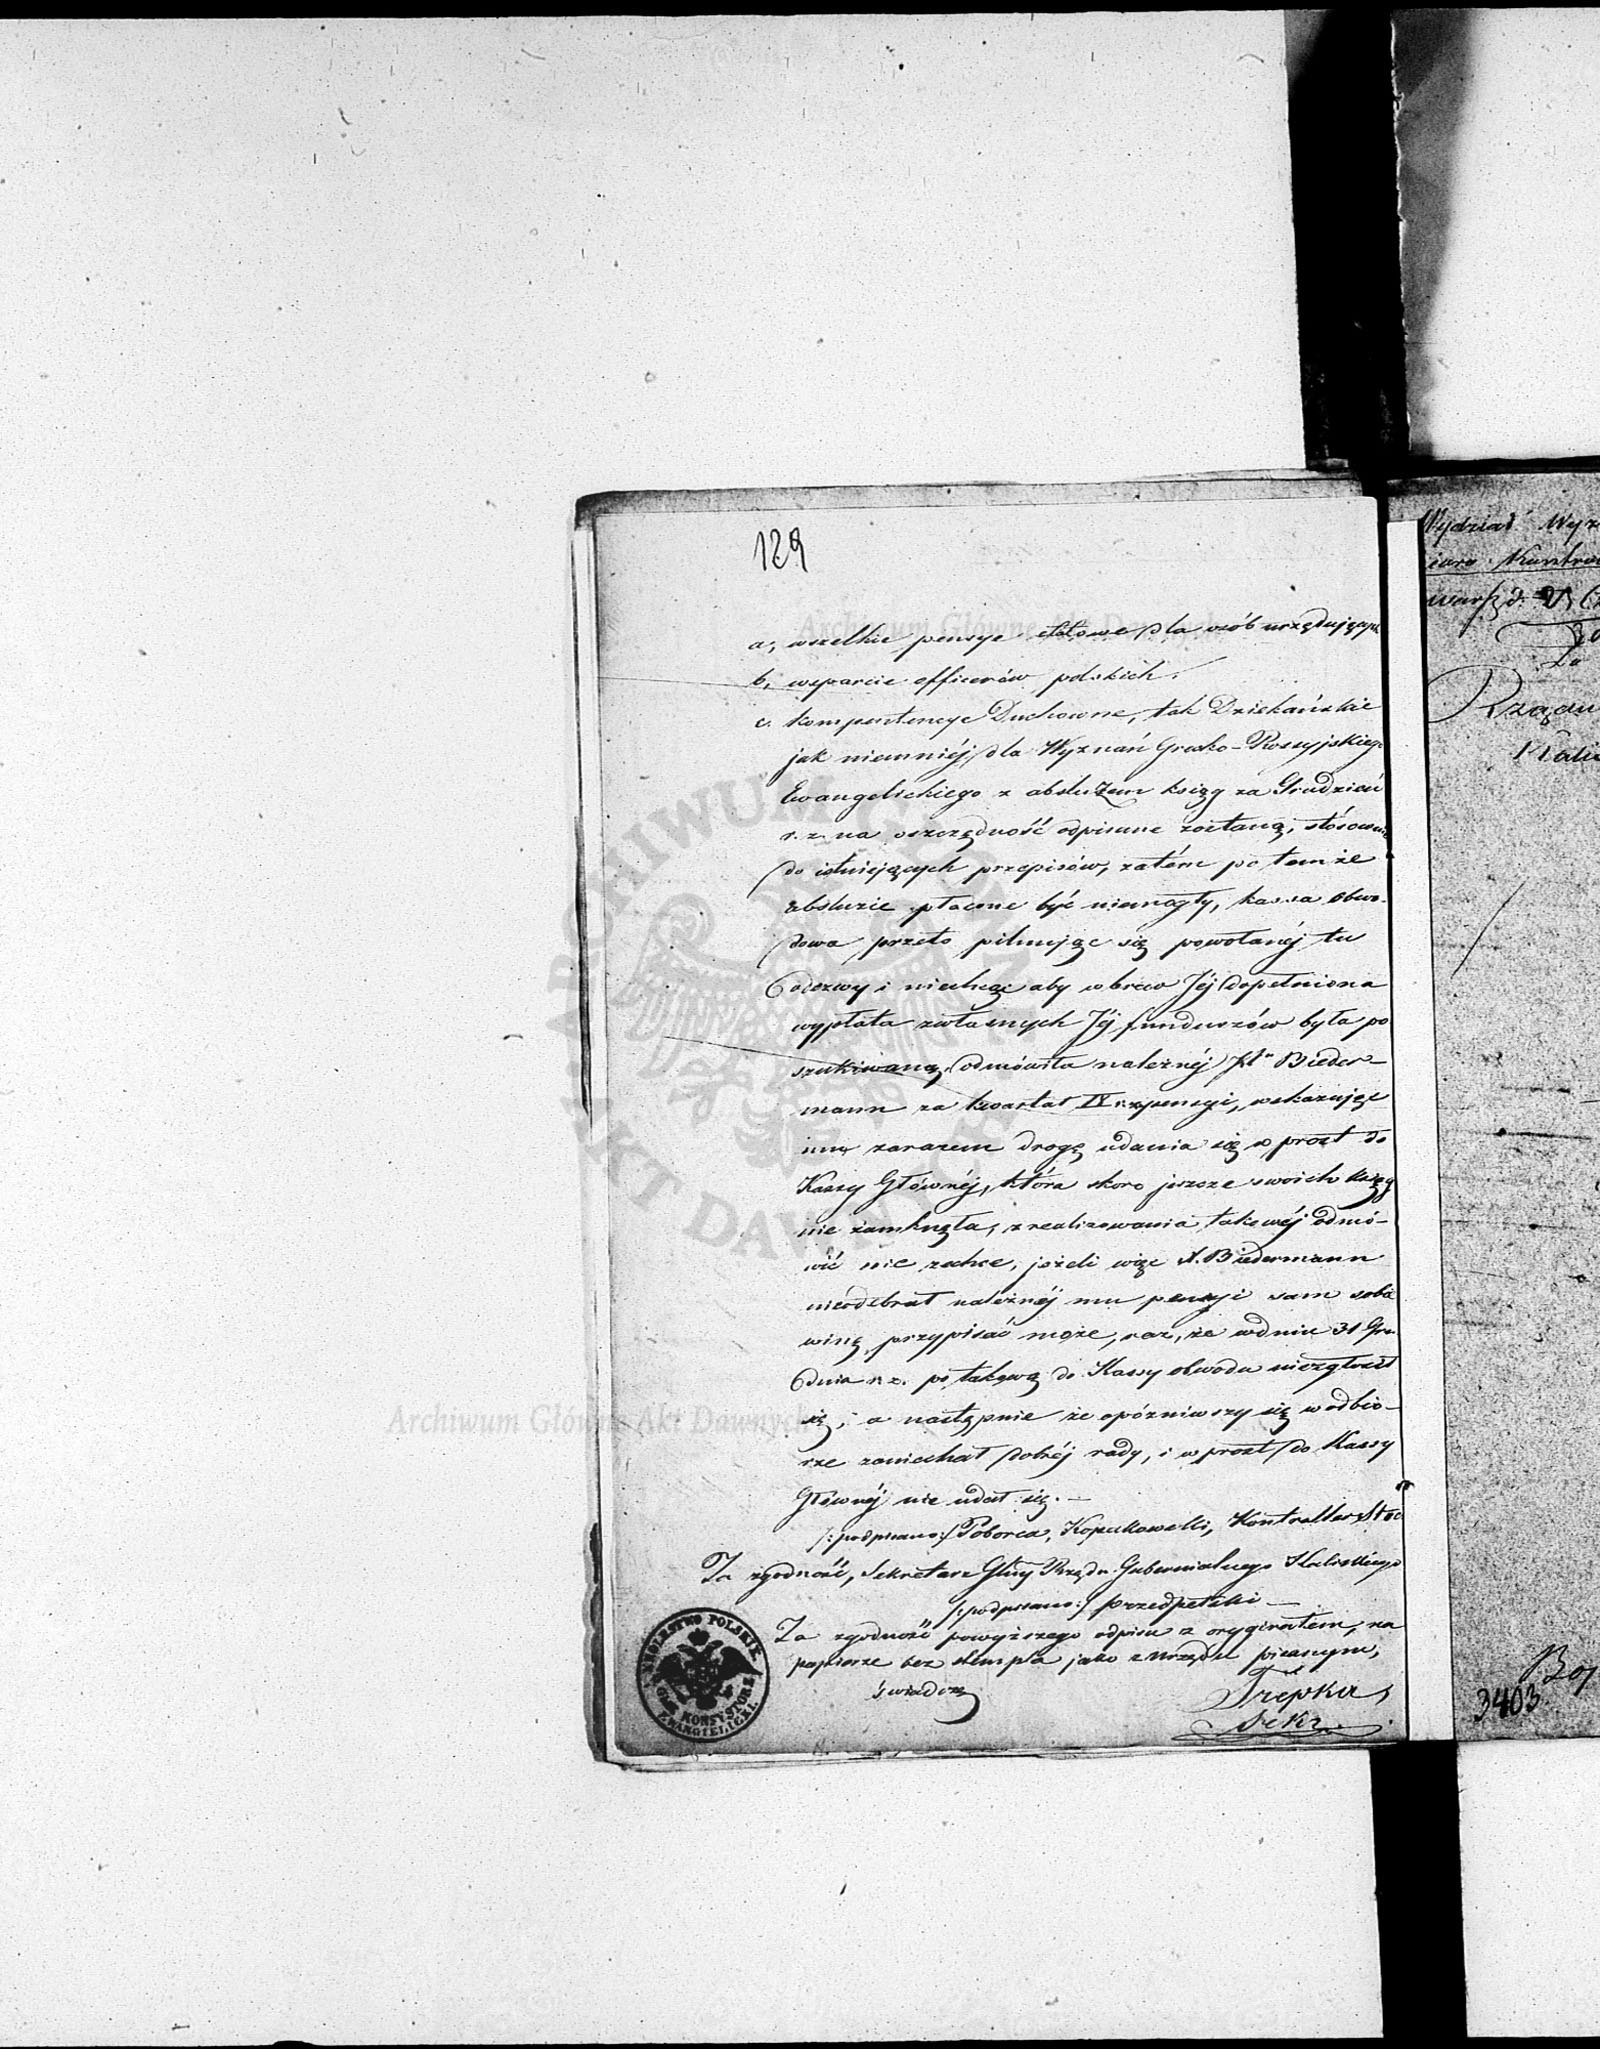 129
a, wszelkie pensye etatowe dla osób urzędujących
b, wsparcie officerów polskich.
c. kompetencye Duchowne, tak Dziekańskie
jak niemniéj dla Wyznań Grecko-Rossyjskiego
Ewangelickiego z abslużem ksiąg za Grudzień
r. z. na oszczędność odpisane zostaną, stósownie
do istniejących przepisów, zatém po temże
absluzie płacone być niemogły, kassa Obwo-
dowa przeto pilnując się powołanéj tu
Odezwy i niechcąc aby wbrew Jéj dopełniona
wypłata z własnych Jéj funduszów była po
szukiwaną, odmówiła należnéj Xu Bieder-
mann za kwartał IV r. z. pensyi, wskazując
mu zarazem drogę udania się w prost do
Kassy Głównéj, która skoro jeszcze swoich ksiąg
nie zamknęła, zrealizowania takowéj odmó-
wić nie zechce, jeżeli więc X. Biedermann
nieodebrał należnéj mu pensyi sam sobie
winę przypisać może, raz, że w dniu 31 Gru-
dnia r. z. po takową do Kassy obwodu niezgłosił
się, a następnie że opóźniwszy się w odbio-
rze zaniechał dobréj rady, i w prost do Kassy
Głównéj nie udał się. —
/:podpisano:/ Poborca, Kontroller
Za zgodność, Sekretarz Głny Rządu Gubernialnego Kaliskiego
/:podpisano:/ Przedpełski —
Za zgodność powyższego odpisu z oryginałem, na
papierze bez stempla jako z urzędu pisanym,
świadczę
Trepka,
Sekr.
KRÓLESTWO POLSKIE
KONSYSTORZ
EWANGELICKI
Wydział Wyz
Kontro
Rządu
3403
Archiwum Główne Akt Dawnych
Archiwum Główne Akt Dawnych
ARCHIWUM GŁÓWNE AKT DAWNYCH